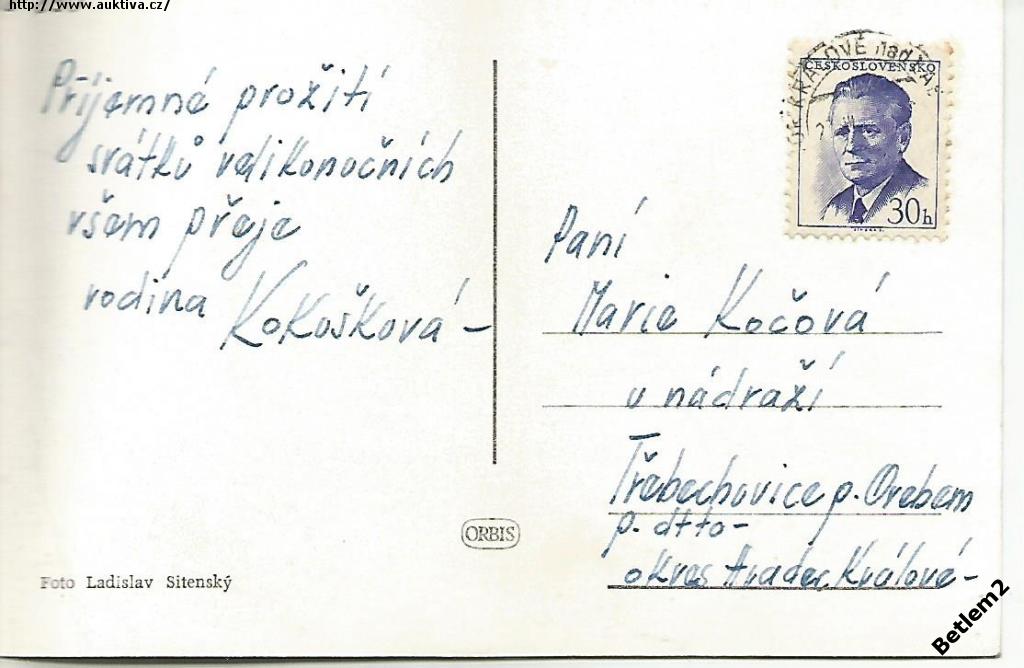 http://www.auktiva.cz/
Příjemné prožití
svátků velikonočních
všem přeje
rodina Kokošková-
ČESKOSLOVENSKO
30h
KRÁLOVÉ nad
Paní
Marie Kočová
u nádraží
Třebechovice p. Orebem
p. dtto-
okres Hradec Králové-
ORBIS
Foto Ladislav Sitenský
Betlem2